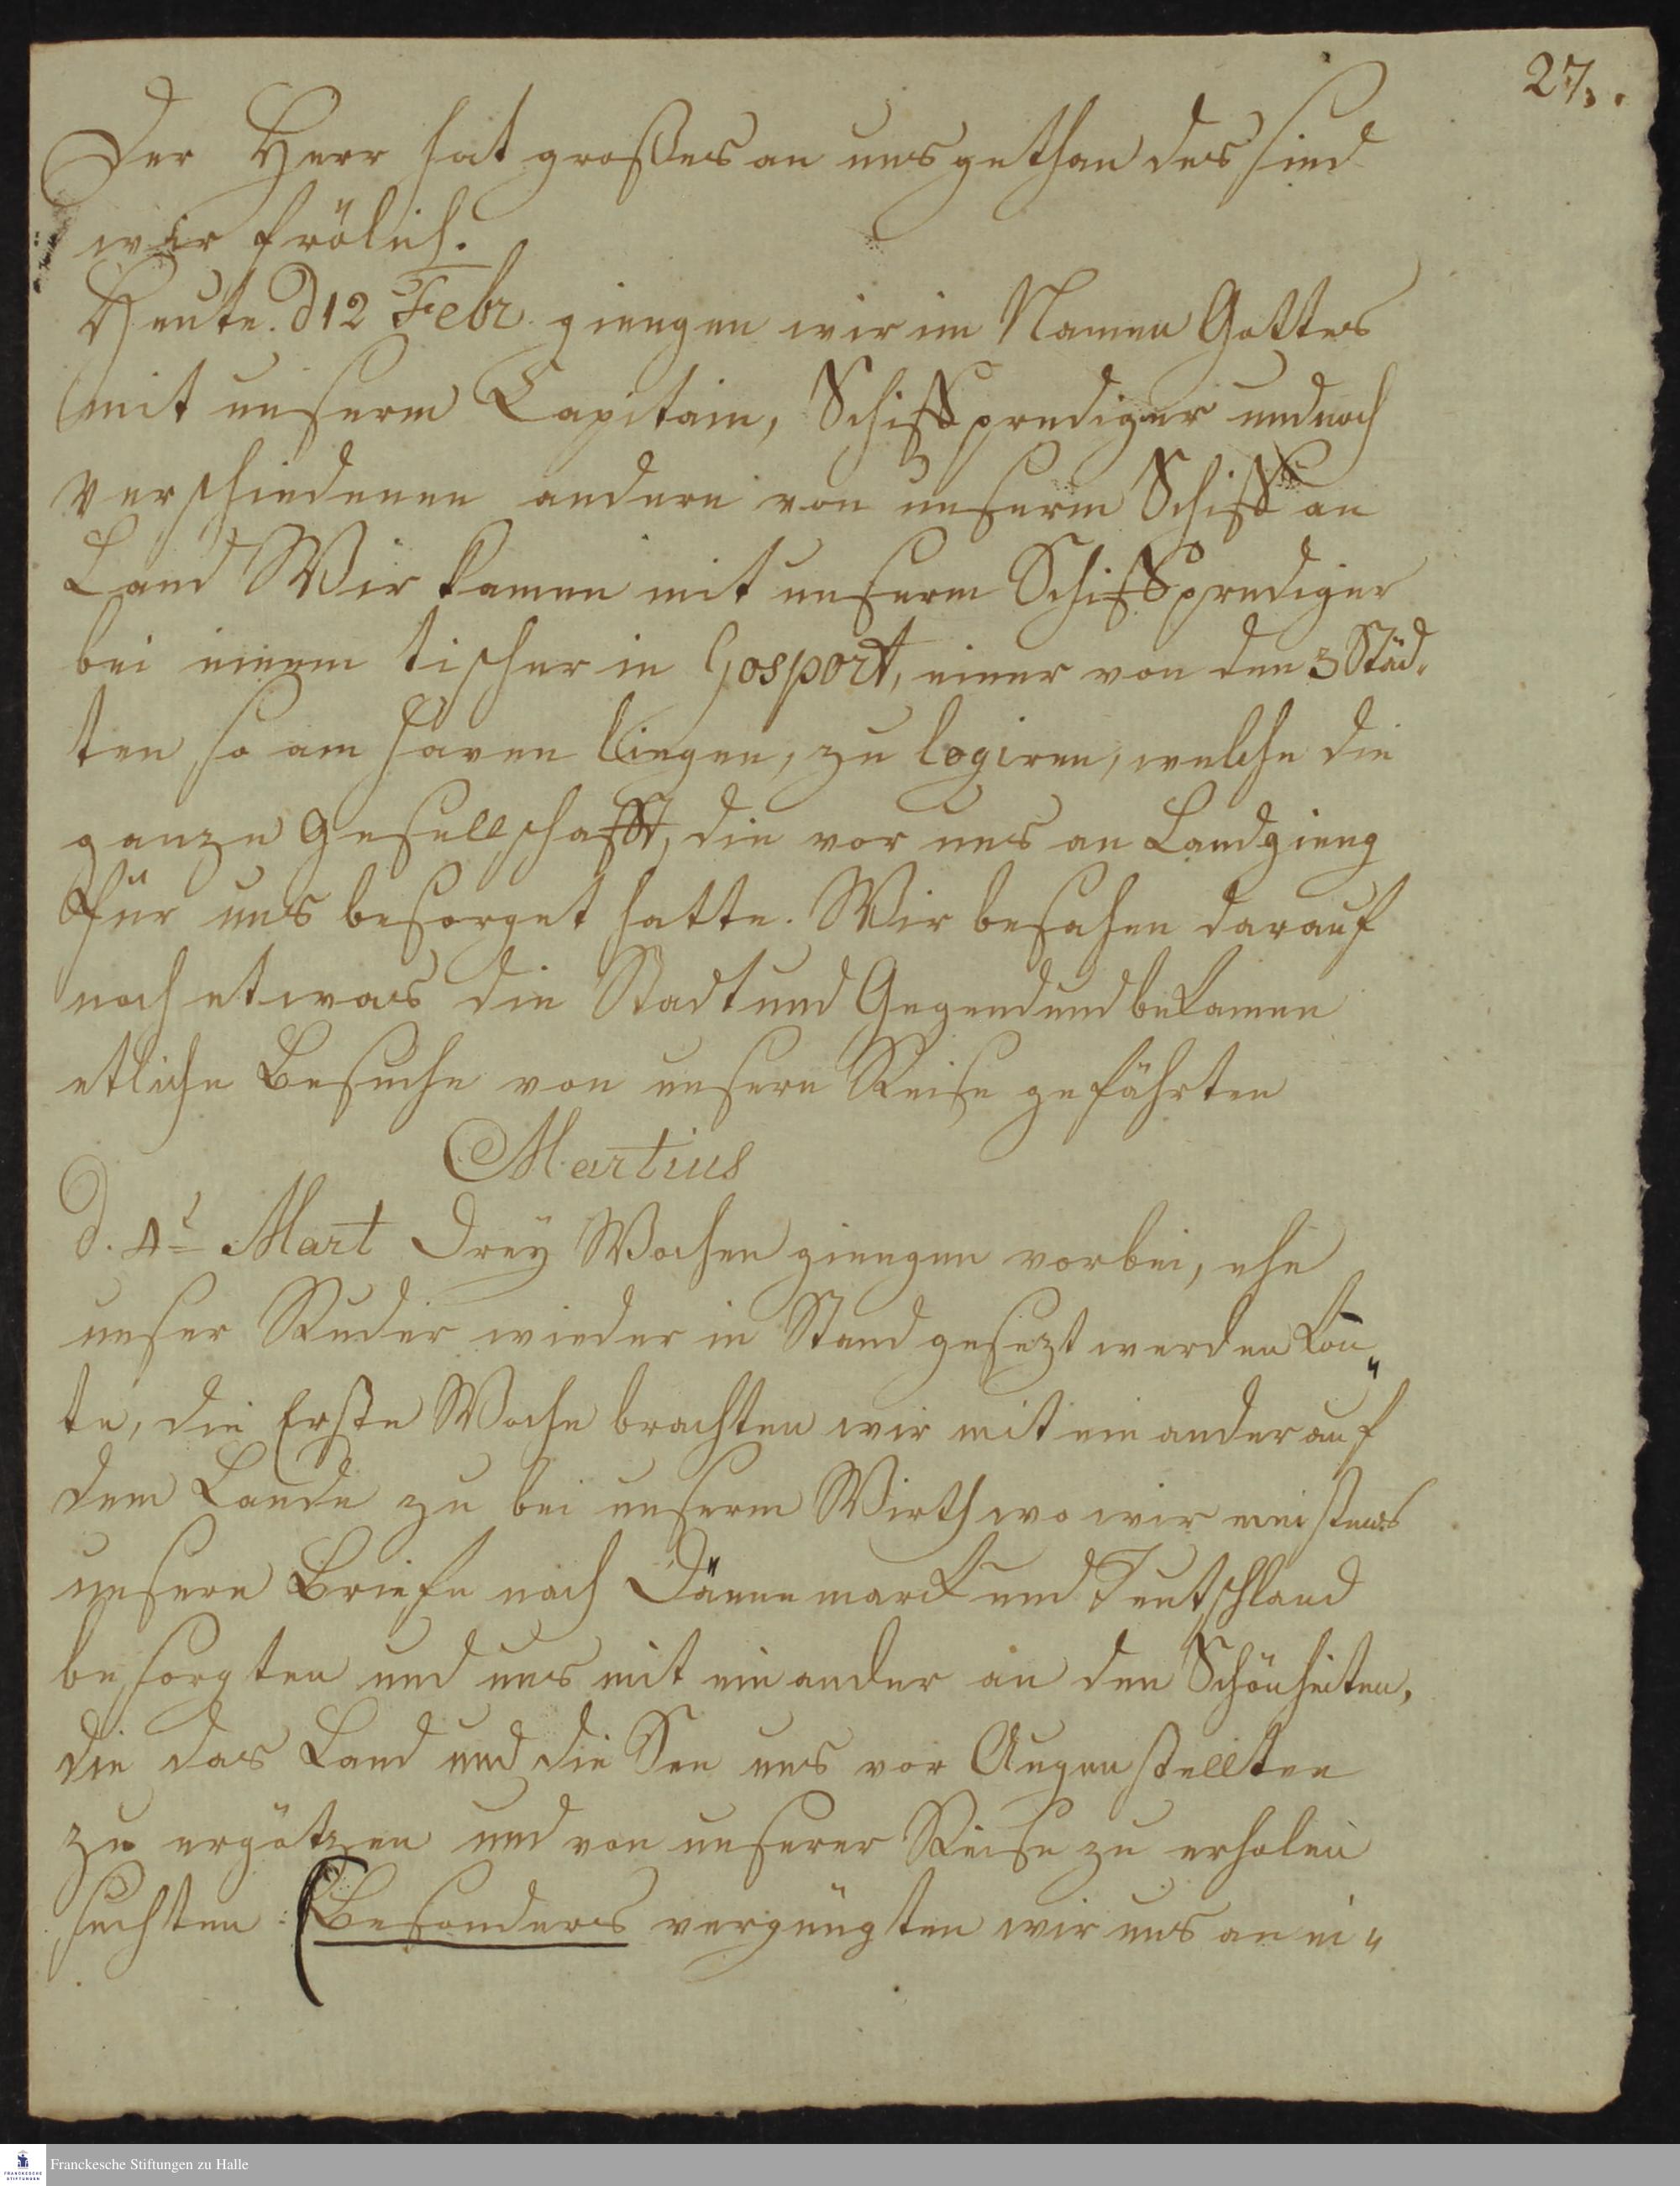 27.
Der Herr hat großes an uns gethan des sind
wir frölich.
Heute. d 12 Febr. giengen wir im Namen Gottes
mit unserm Capitain, Schiffsprediger und noch
verschiedenen andern von unserm Schiff an
Land Wir kamen mit unserm Schiffsprediger
bei einem tischer in Gosport, einer von den 3 Städ-
ten so am Haven liegen, zu logiren, welche die
ganze Gesellschafft, die vor uns an Land gieng
für uns besorget hatte. Wir besahen darauf
noch etwas die Stadt und Gegend und bekamen
etliche Besuche von unsern Reise gefährten
Martius
d. 4t Mart Dreÿ Wochen giengen vorbei, ehe
unser Ruder wieder in Stand gesezt werden kon̄"
te, die Erste Woche brachten wir mit ein ander auf
dem Lande zu bei unserm Wirth wo wir meistens
unsere Briefe nach Dännemarck und Teutschland
besorgten und uns mit einander an den Schönheiten,
die das Land und die See uns vor Augen stellten
zu ergötzen und von unserer Reise zu erholen
suchten: (Besonders vergnügten wir uns an ei"
Franckesche Stiftungen zu Halle
FRANCKESCHE
STIFTUNGEN